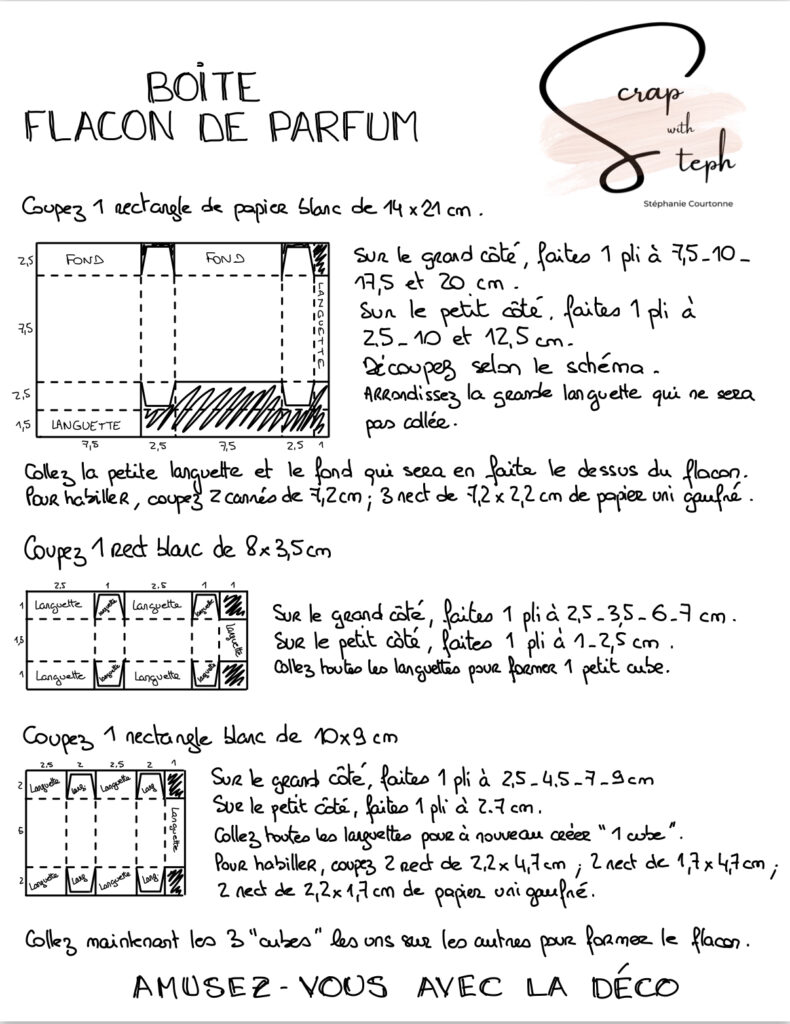 BOÎTE
FLACON DE PARFUM
Scrap
with
Steph
Stéphanie Courtonne
Coupez 1 rectangle de papier blanc de 14 x 21 cm.
2,5 FOND FOND
7,5 LANGUETTE
2,5
1,5 LANGUETTE
7,5 2,5 7,5 2,5 1
Sur le grand côté, faites 1 pli à 7,5_10_
17,5 et 20 cm.
Sur le petit côté, faites 1 pli à
2,5_10 et 12,5 cm.
Découpez selon le schéma.
ARRONDISSEZ la grande languette qui ne sera
pas collée.
Collez la petite languette et le fond qui sera en faite le dessus du flacon.
Pour habiller, coupez 2 carrés de 7,2cm ; 3 rect de 7,2 x 2,2 cm de papier uni gaufré.
Coupez 1 rect blanc de 8 x 3,5 cm
2,5 1 2,5 1 1
1 Languette Languette Languette Languette
1,5 Languette
1 Languette Languette Languette Languette
Sur le grand côté, faites 1 pli à 2,5_3,5_6_7 cm.
Sur le petit côté, faites 1 pli à 1_2,5 cm.
Collez toutes les languettes pour former 1 petit cube.
Coupez 1 rectangle blanc de 10x9 cm
2,5 2 2,5 2 1
2 Languette Lang Languette Lang
6 Languette
2 Languette Lang Languette Lang
Sur le grand côté, faites 1 pli à 2,5_4,5_7_9cm
Sur le petit côté, faites 1 pli à 2.7 cm.
Collez toutes les languettes pour à nouveau créer "1 cube".
Pour habiller, coupez 2 rect de 2,2 x 4,7 cm ; 2 rect de 1,7 x 4,7 cm ;
2 rect de 2,2 x 1,7 cm de papier uni gaufré.
Collez maintenant les 3 "cubes" les uns sur les autres pour former le flacon.
AMUSEZ-VOUS AVEC LA DÉCO